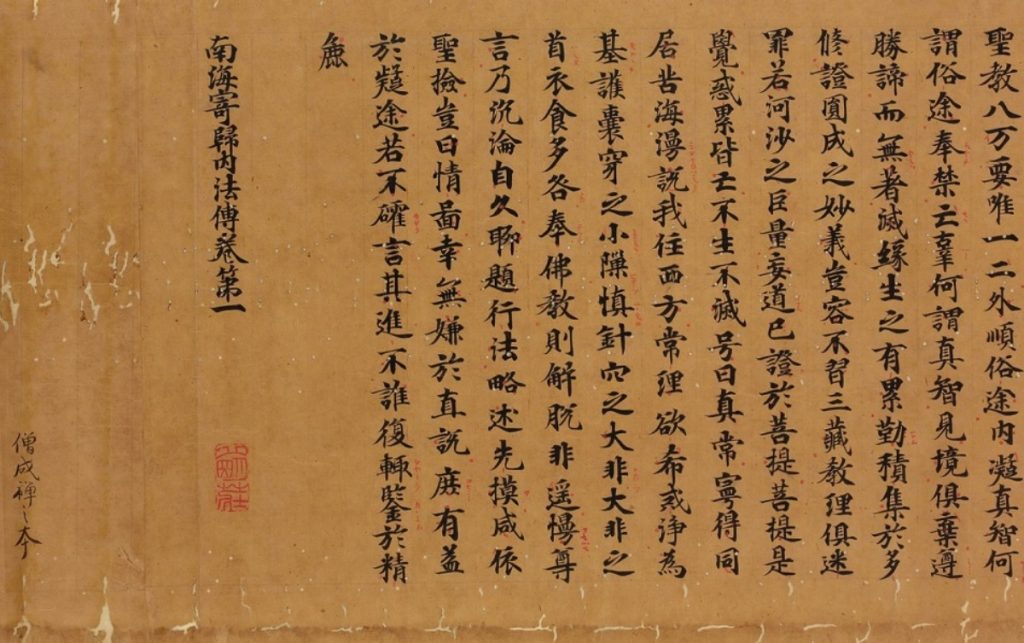 聖教八万要唯一二外順俗途内凝真智何
謂俗途奉禁亡辜何謂真智見境俱棄遵
勝諦而無著滅緣生之有累勤積集於多
修證圓成之妙義豈容不習三藏教理俱迷
罪若河沙之巨量妄道已證於菩提菩提是
覺惑累皆亡不生不滅号曰真常寧得同
居苦海漫說我住西方常理欲希或淨為
基護囊穿之小隟慎針穴之大非大非之
首衣食多咎奉佛教則解脫非遥慢尊
言乃沉淪自久聊題行法略述先摸咸依
聖撿豈曰情啚幸無嫌於直說庶有益
於疑途若不確言其進不誰復輙鑒於精
麁
南海寄歸內法傳卷第一
僧成禅之本